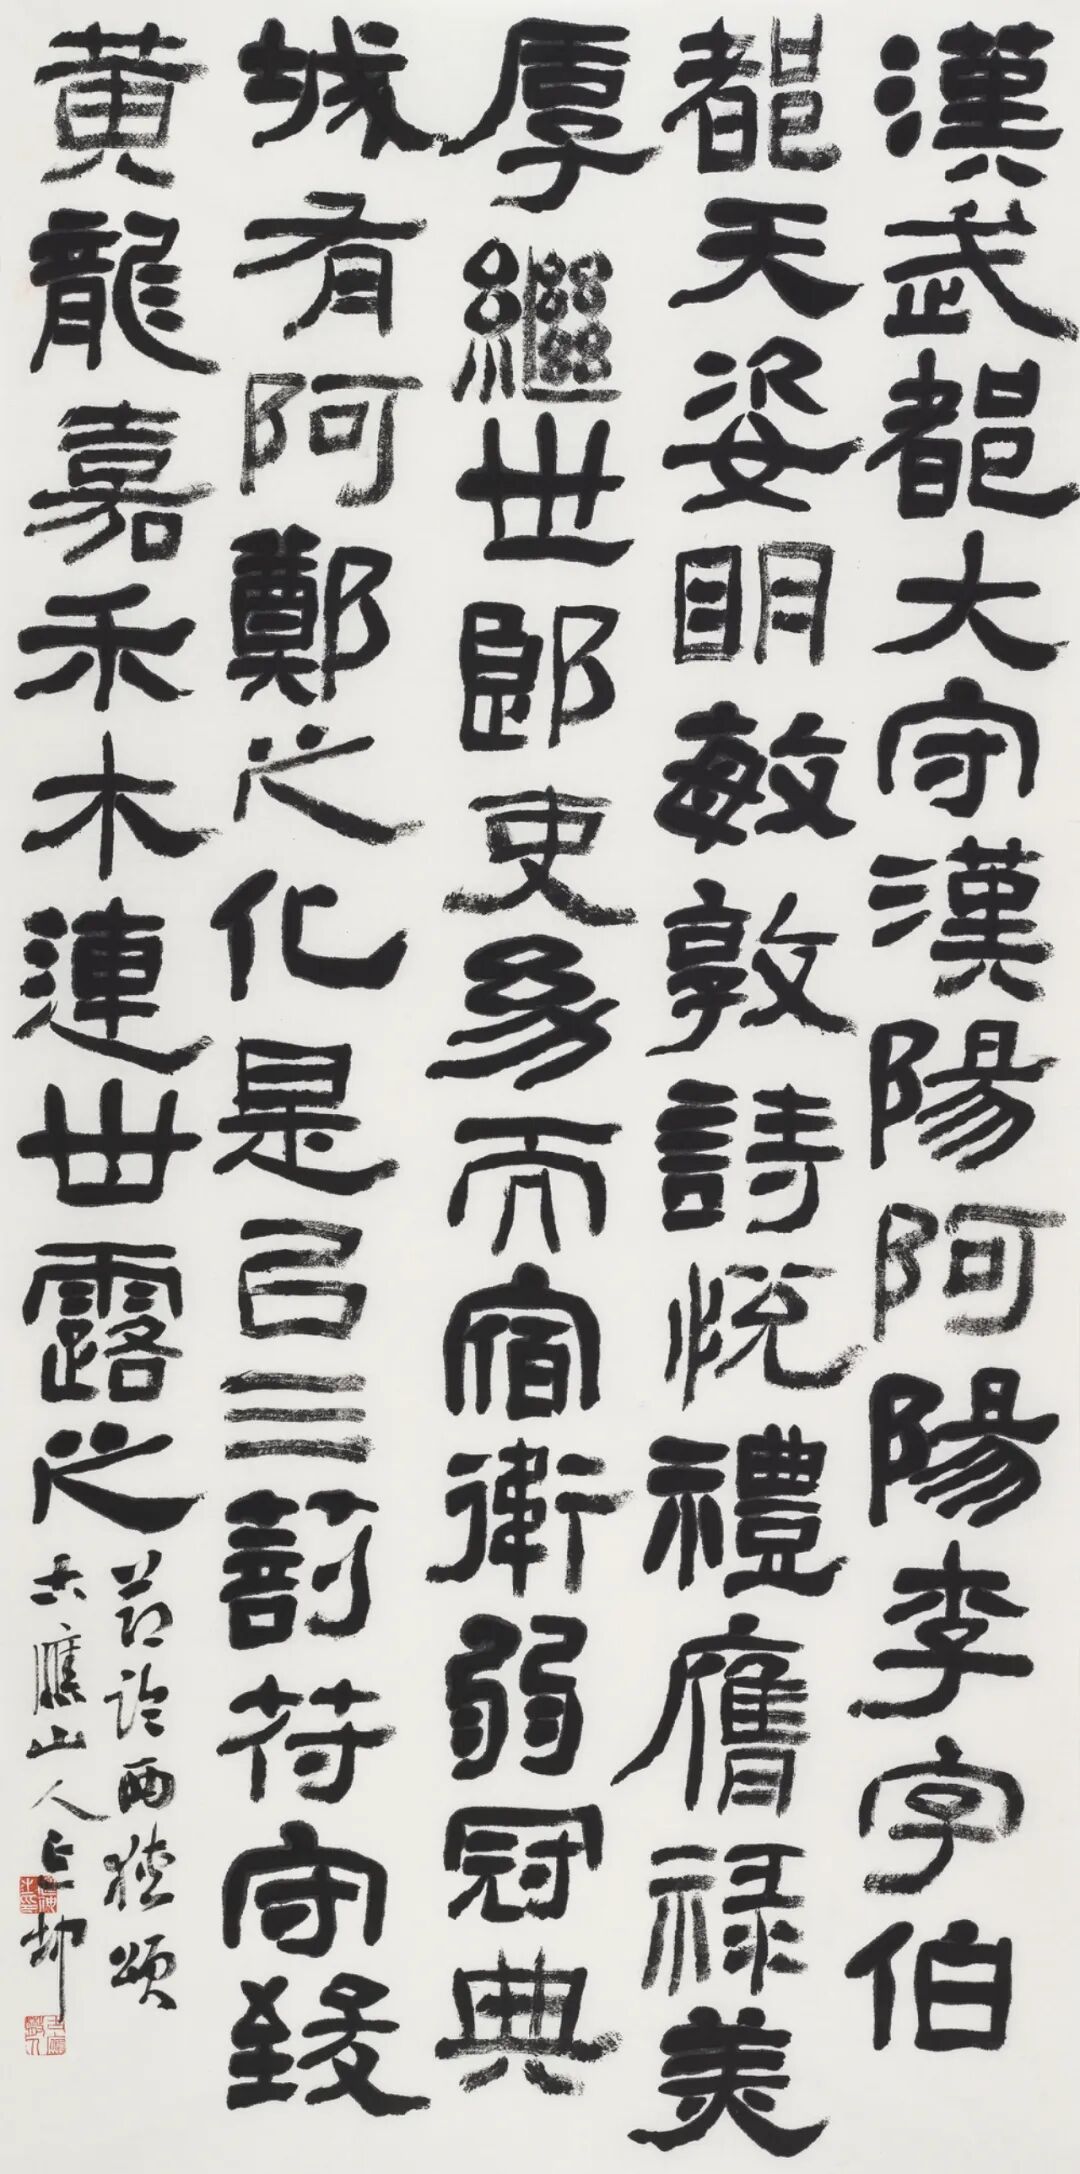 漢武都大守漢陽阿陽李字伯
都天姿明敏敦詩悅禮膺祿美
厚繼世郎吏幼而宿衛弱冠典
城有阿鄭之化是㠯三剖符守致
黃龍嘉禾木連甘露之
節臨西狹頌
山人